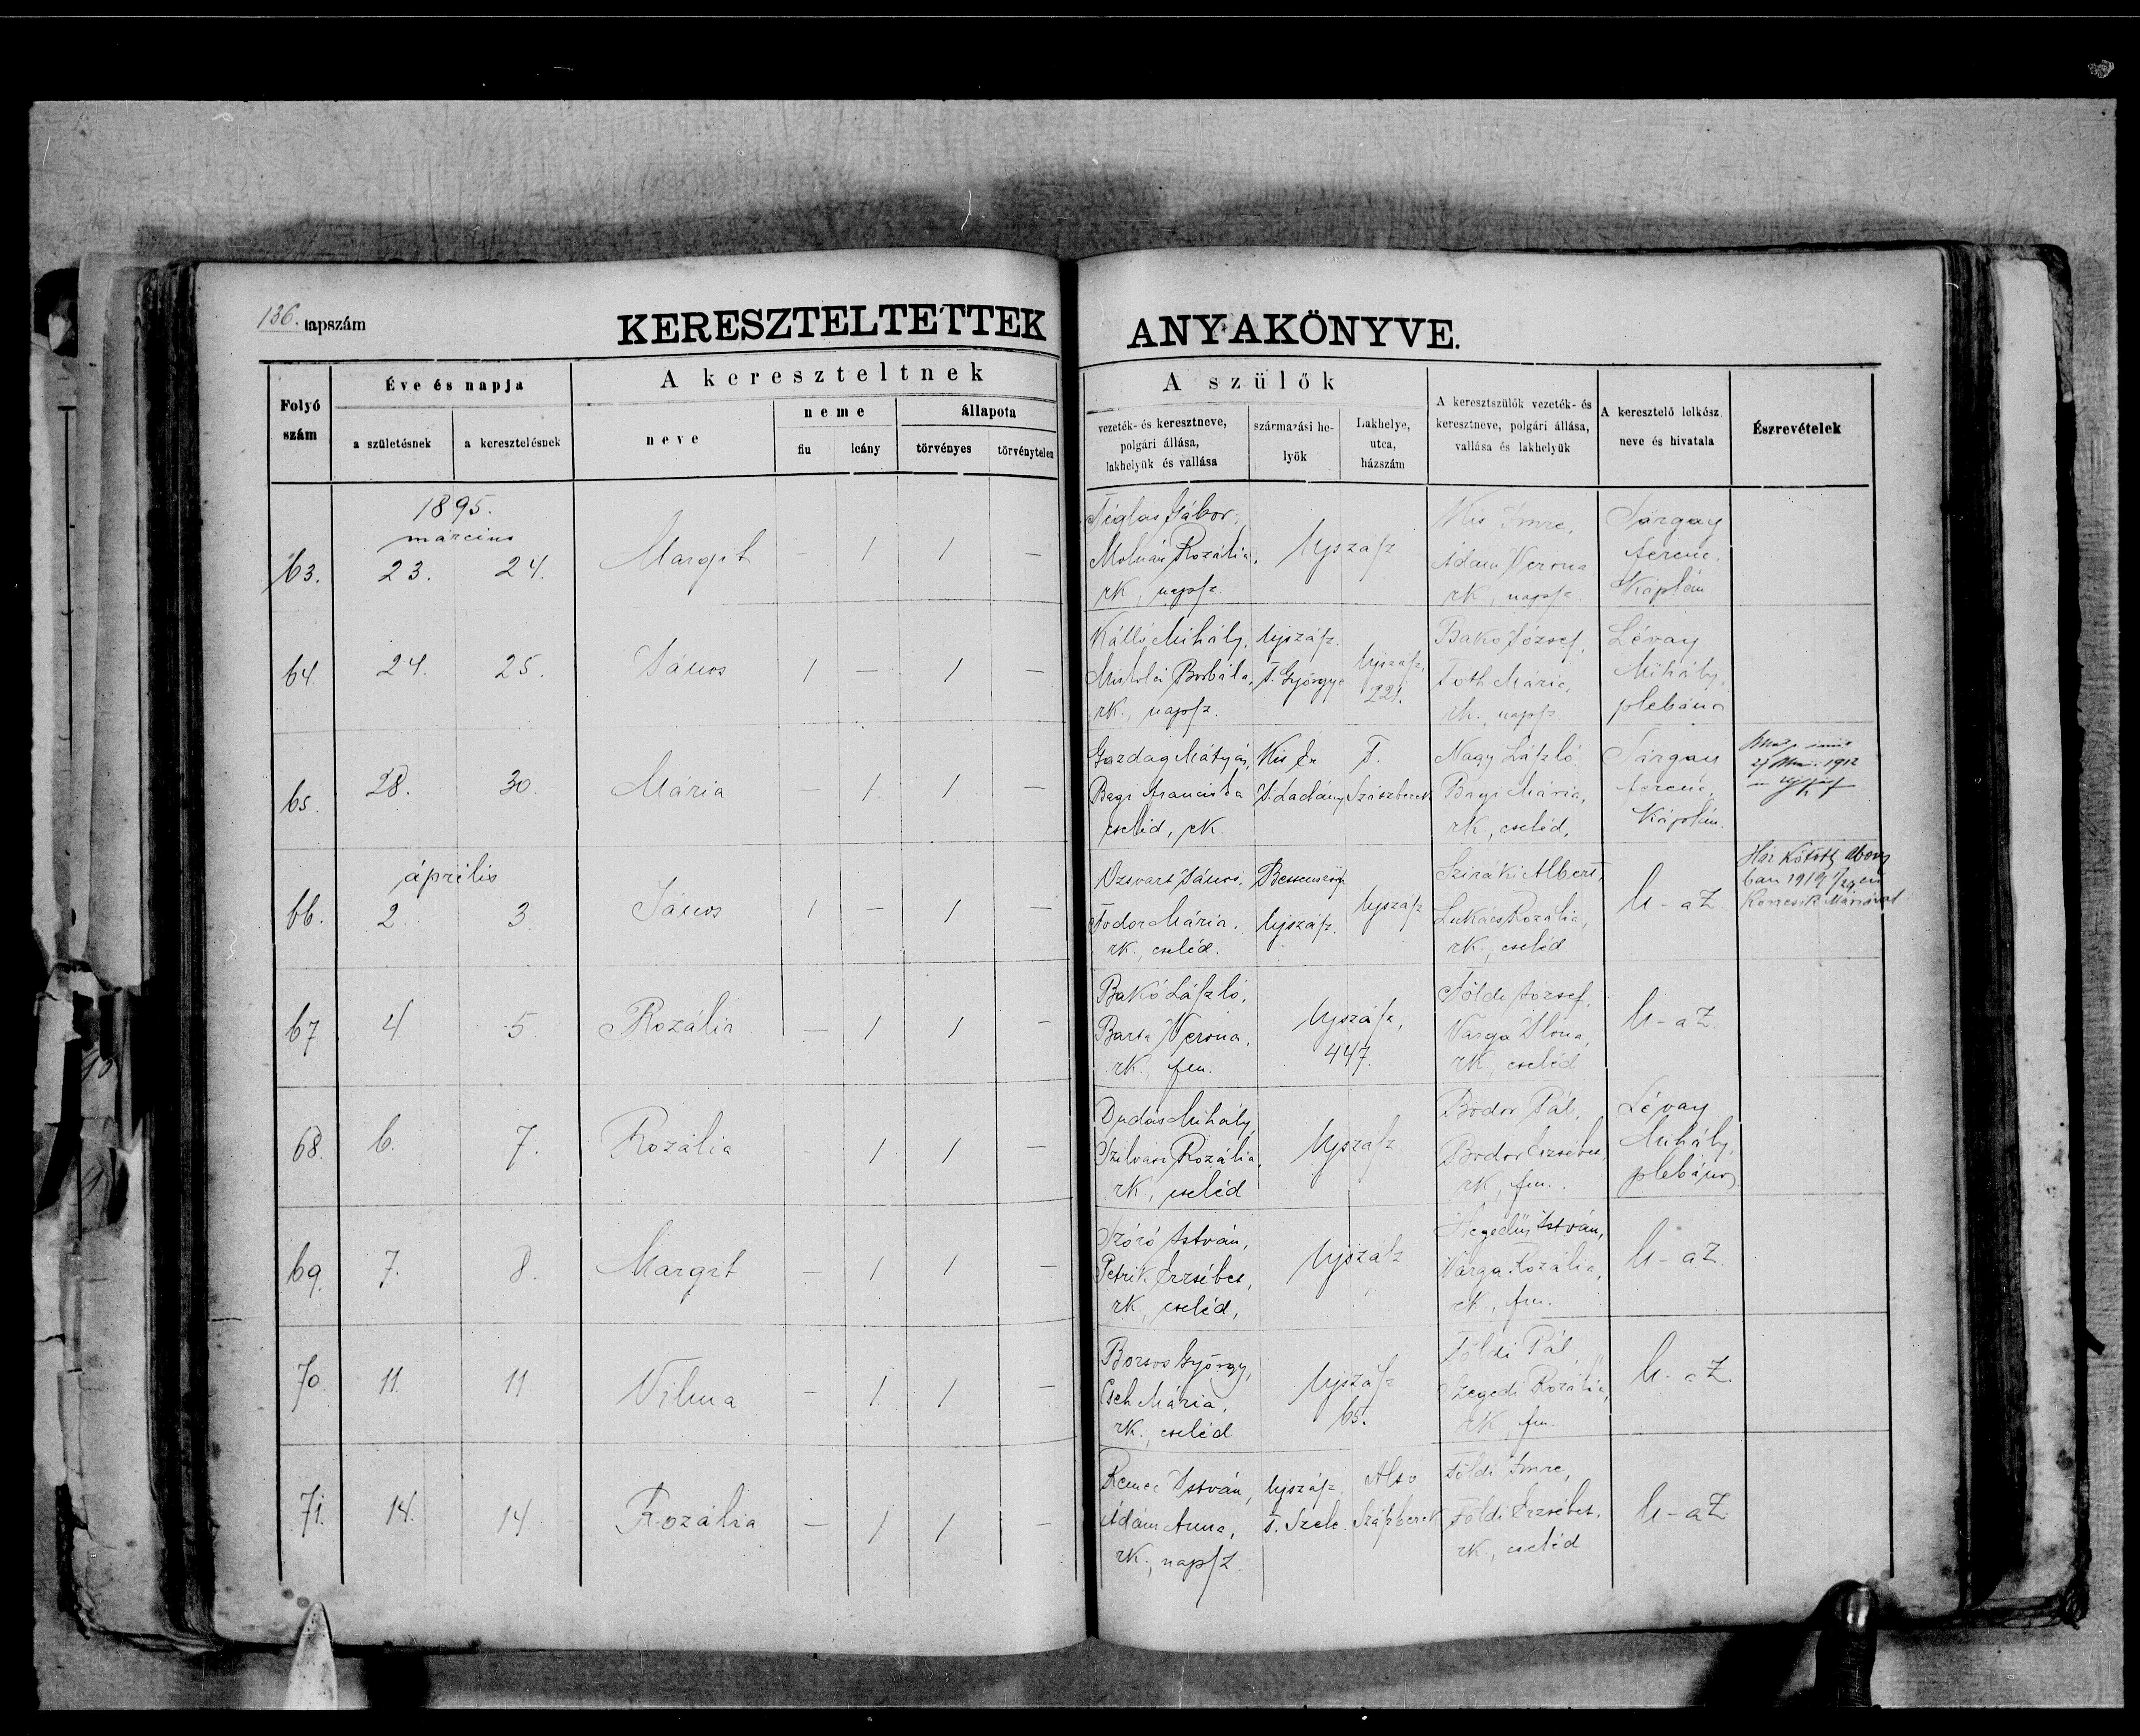 136. lapszám
KERESZTELTETTEK ANYAKÖNYVE.
Folyó szám
Éve és napja
a születésnek
a keresztelésnek
A kereszteltnek
neve
neme
fiu
leány
állapota
törvényes
törvénytelen
A szülők
vezeték- és keresztneve,
polgári állása,
lakhelyük és vallása
származási he-
lyök
Lakhelye,
utca,
házszám
A keresztszülők vezeték- és
keresztneve, polgári állása,
vallása és lakhelyük
A keresztelő lelkész
neve és hivatala
Észrevételek
1895.
március
63. 23. 24. Margit — 1 1 —
Téglas Gábor,
Molnár Rozália,
rk, napsz.
Ujszász
Kis Imre,
Ádám Verona
rk, napsz.
Tárgay
ferenc,
Káplán
64. 24. 25. János 1 — 1 —
Kálló Mihály,
Borbála,
rk., napsz.
Ujszász.
T. György
Ujszász,
221.
Bakó József,
Tóth Mária,
rk., napsz
Lévay
Mihály,
plebános
65. 28. 30. Mária — 1 1 —
Gazdag Mátyás,
Bagi Franciska
cseléd, rk.
Kis Ér
P. Ladány
T.
Szászberek
Nagy László
Bagi Mária,
rk., cseléd,
Tárgay
ferenc,
Káplán.
1912
április
66. 2. 3. János 1 — 1 —
János,
Fodor Mária,
rk., cseléd.
Bessenyszög
Ujszász.
Ujszász
Sziráki Albert,
Lukács Rozália,
rk., cseléd
U-az
Ház. kötött Abony
ban 1919
Máriával
67 4. 5. Rozália — 1 1 —
Bakó László,
Barta Verona,
rk., fm.
Ujszász,
447.
Földi József,
Varga Ilona,
rk, cseléd
U-az.
68. 6. 7. Rozália - 1 1 —
Dudás Mihály,
Szilvási Rozália,
rk, cseléd
Ujszász
Bodor Pál,
Bodor Erzsébet,
rk, fm.
Lévay
Mihály,
plebános
69. 7. 8. Margit — 1 1 —
Szóró István,
Petrik Erzsébet,
rk, cseléd,
Ujszász
Hegedüs István,
Varga Rozália,
rk, fm.
U-az.
70 11. 11 Vilma — 1 1 —
Borsos György,
Cseh Mária,
rk., cseléd
Ujszász
65.
Földi Pál
Szegedi Rozália,
rk, fm.
U-az.
71. 14. 14 Rozália — 1 1 —
István,
Ádám Anna,
rk., napsz.
Ujszász
T. Szele.
Alsó
Szászberek
Földi Imre,
Földi Erzsébet,
rk., cseléd
U-az